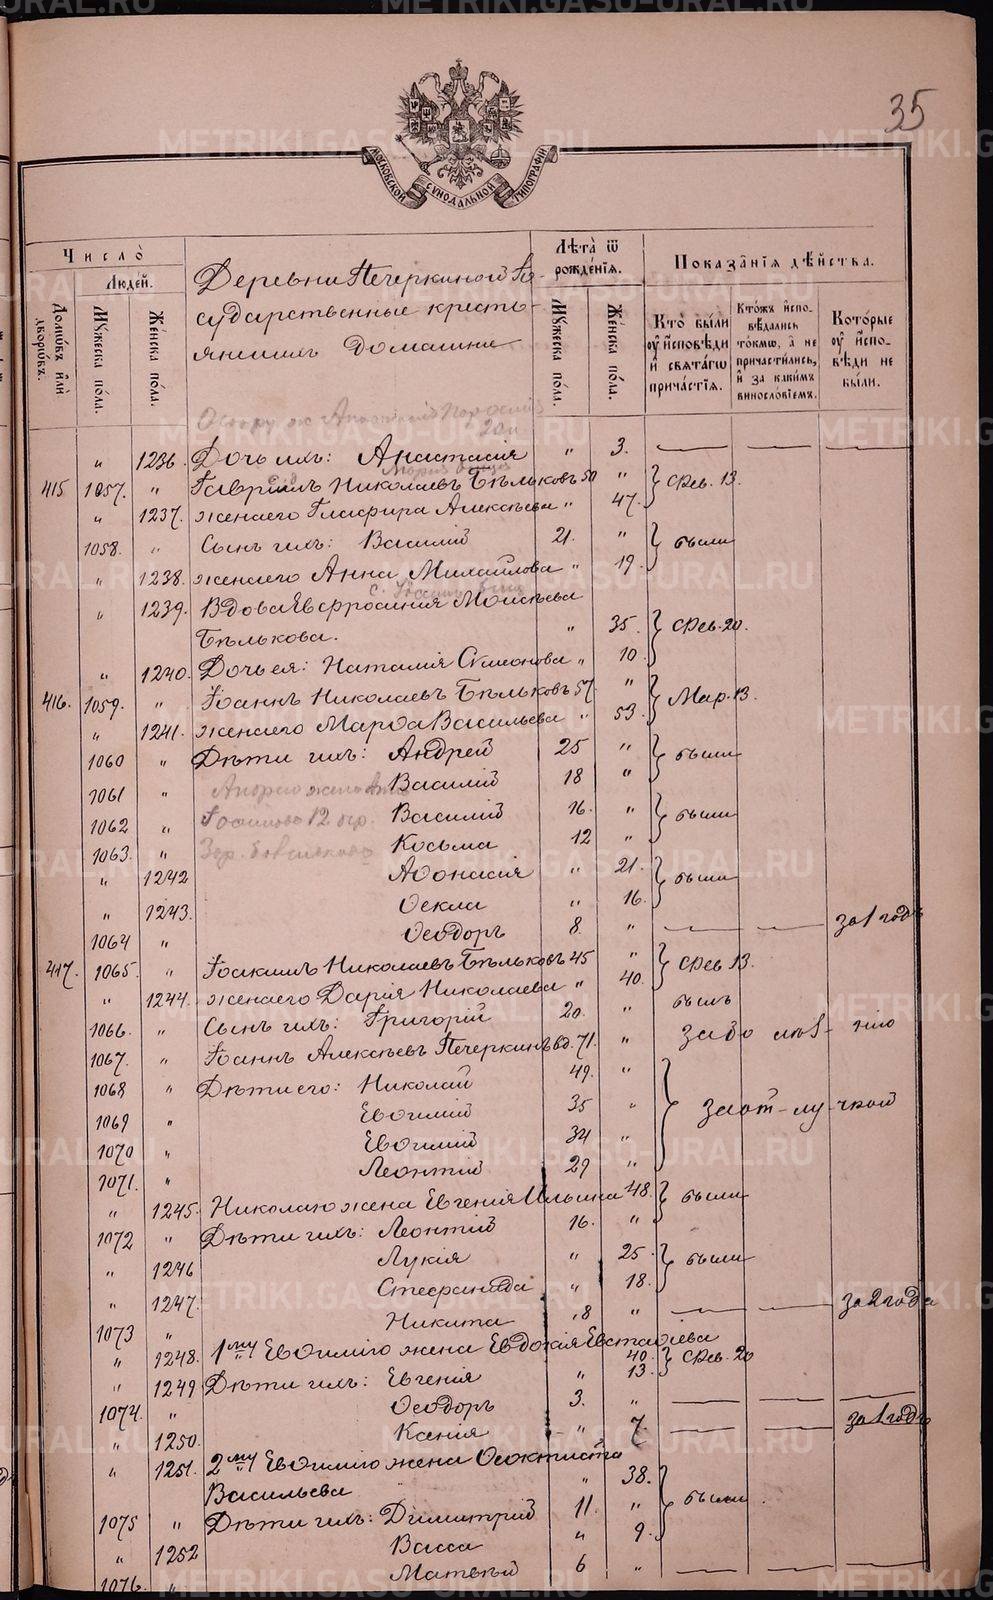 METRIKI.GASU-URAL.RU
35
МОСКОВСКОЙ СѴНОДАЛЬНОЙ ТИПОГРАФІИ
Число̀
Людей.
Домѡвъ илѝ дворѡвъ.
Мꙋжеска пола.
Женска пола.
Деревни Печеркиной Го-
сударственные кресть-
янешихъ Домашне
Лѣта̀ ѿ рожде́нїѧ.
Мꙋжеска пола.
Женска пола.
Показа̑нїѧ дѣ́йства.
Кто̀ бы́ли ᲂу̓ и҆сповѣди и҆ свѧта́гѡ прича́стїѧ.
Кто́жъ и҆спо-вѣдались то́кмѡ, а҆ не причасти́лись, и҆ за каки́мъ винослові́емъ.
Кото́рые ᲂу̓ и҆спо-вѣ́ди не бы́ли.
" 1236. Дочь ихъ: Анастасія " 3.
415 1057. " Гавріилъ Николаевъ Бѣльковъ 50 " Фев. 13.
" 1237. жена его Глафира Алексѣева " 47.
1058. " Сынъ ихъ: Василій 21. " были
" 1238. жена его Анна Михайлова " 19.
" 1239. Вдова Евфросинія Моисѣева
Бѣлькова. " 35. Фев. 20.
" 1240. Дочь ея: Наталія Симеонова " 10.
416. 1059. " Іоаннъ Николаевъ Бѣльковъ 57 " Мар. 13.
" 1241. жена его Марѳа Васильева " 53.
1060 " Дѣти ихъ: Андрей 25 " были
1061 " Василій 18 "
1062 " Василій 16. " были
1063. " Косьма 12 "
" 1242 Аѳонасія " 21. были
" 1243. Ѳекла " 16.
1064 " Ѳеодоръ 8. " за 1 годъ
417. 1065. " Іоакимъ Николаевъ Бѣльковъ 45 " Фев 13.
" 1244. жена его Дарія Николаева " 40.
1066. " Сынъ ихъ: Григорій 20. " былъ
1067. " Іоаннъ Алексѣевъ Печеркинъ вд. 71. "
1068 " Дѣти его: Николай 49. "
1069 " Евѳимій 35 " за от-лу-чкой
1070 " Евѳимій 34 "
1071. " Леонтій 29 "
" 1245. Николаю жена Евгенія Ильина 48. были
1072 " Дѣти ихъ: Леонтій 16. "
" 1246 Лукія " 25. были
" 1247. Стефанида " 18.
1073 " Никита 8 " за 2 года
" 1248. 1му Евѳимію жена Евдокія Евстаѳіева 40. Фев. 20
" 1249 Дѣти ихъ: Евгенія " 13.
1074. " Ѳеодоръ 3. "
" 1250. Ксенія " 7. за 1 годъ
" 1251. 2му Евѳимію жена Ѳеоктиста
Васильева " 38. были.
1075 " Дѣти ихъ: Димитрій 11. "
" 1252 Васса " 9.
1076. " Матвѣй 6 "